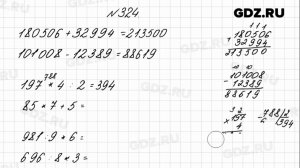 GDZ.RU
№324
180506 + 32994 = 213500
101008 - 12389 = 88619
788
197 * 4 : 2 = 394
85 * 7 + 5 =
981 : 9 * 6 =
696 : 8 * 3 =
1 1 1
180506
+ 32994
213500
101008
- 12389
88619
3 2
× 197
4
788 | 2
394
GDZ.RU